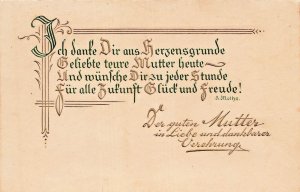 Ich danke Dir aus Herzensgrunde
Geliebte teure Mutter heute—
Und wünsche Dir zu jeder Stunde
Für alle Zukunft Glück und Freude!
Der guten Mutter
in Liebe und dankbarer
Verehrung.